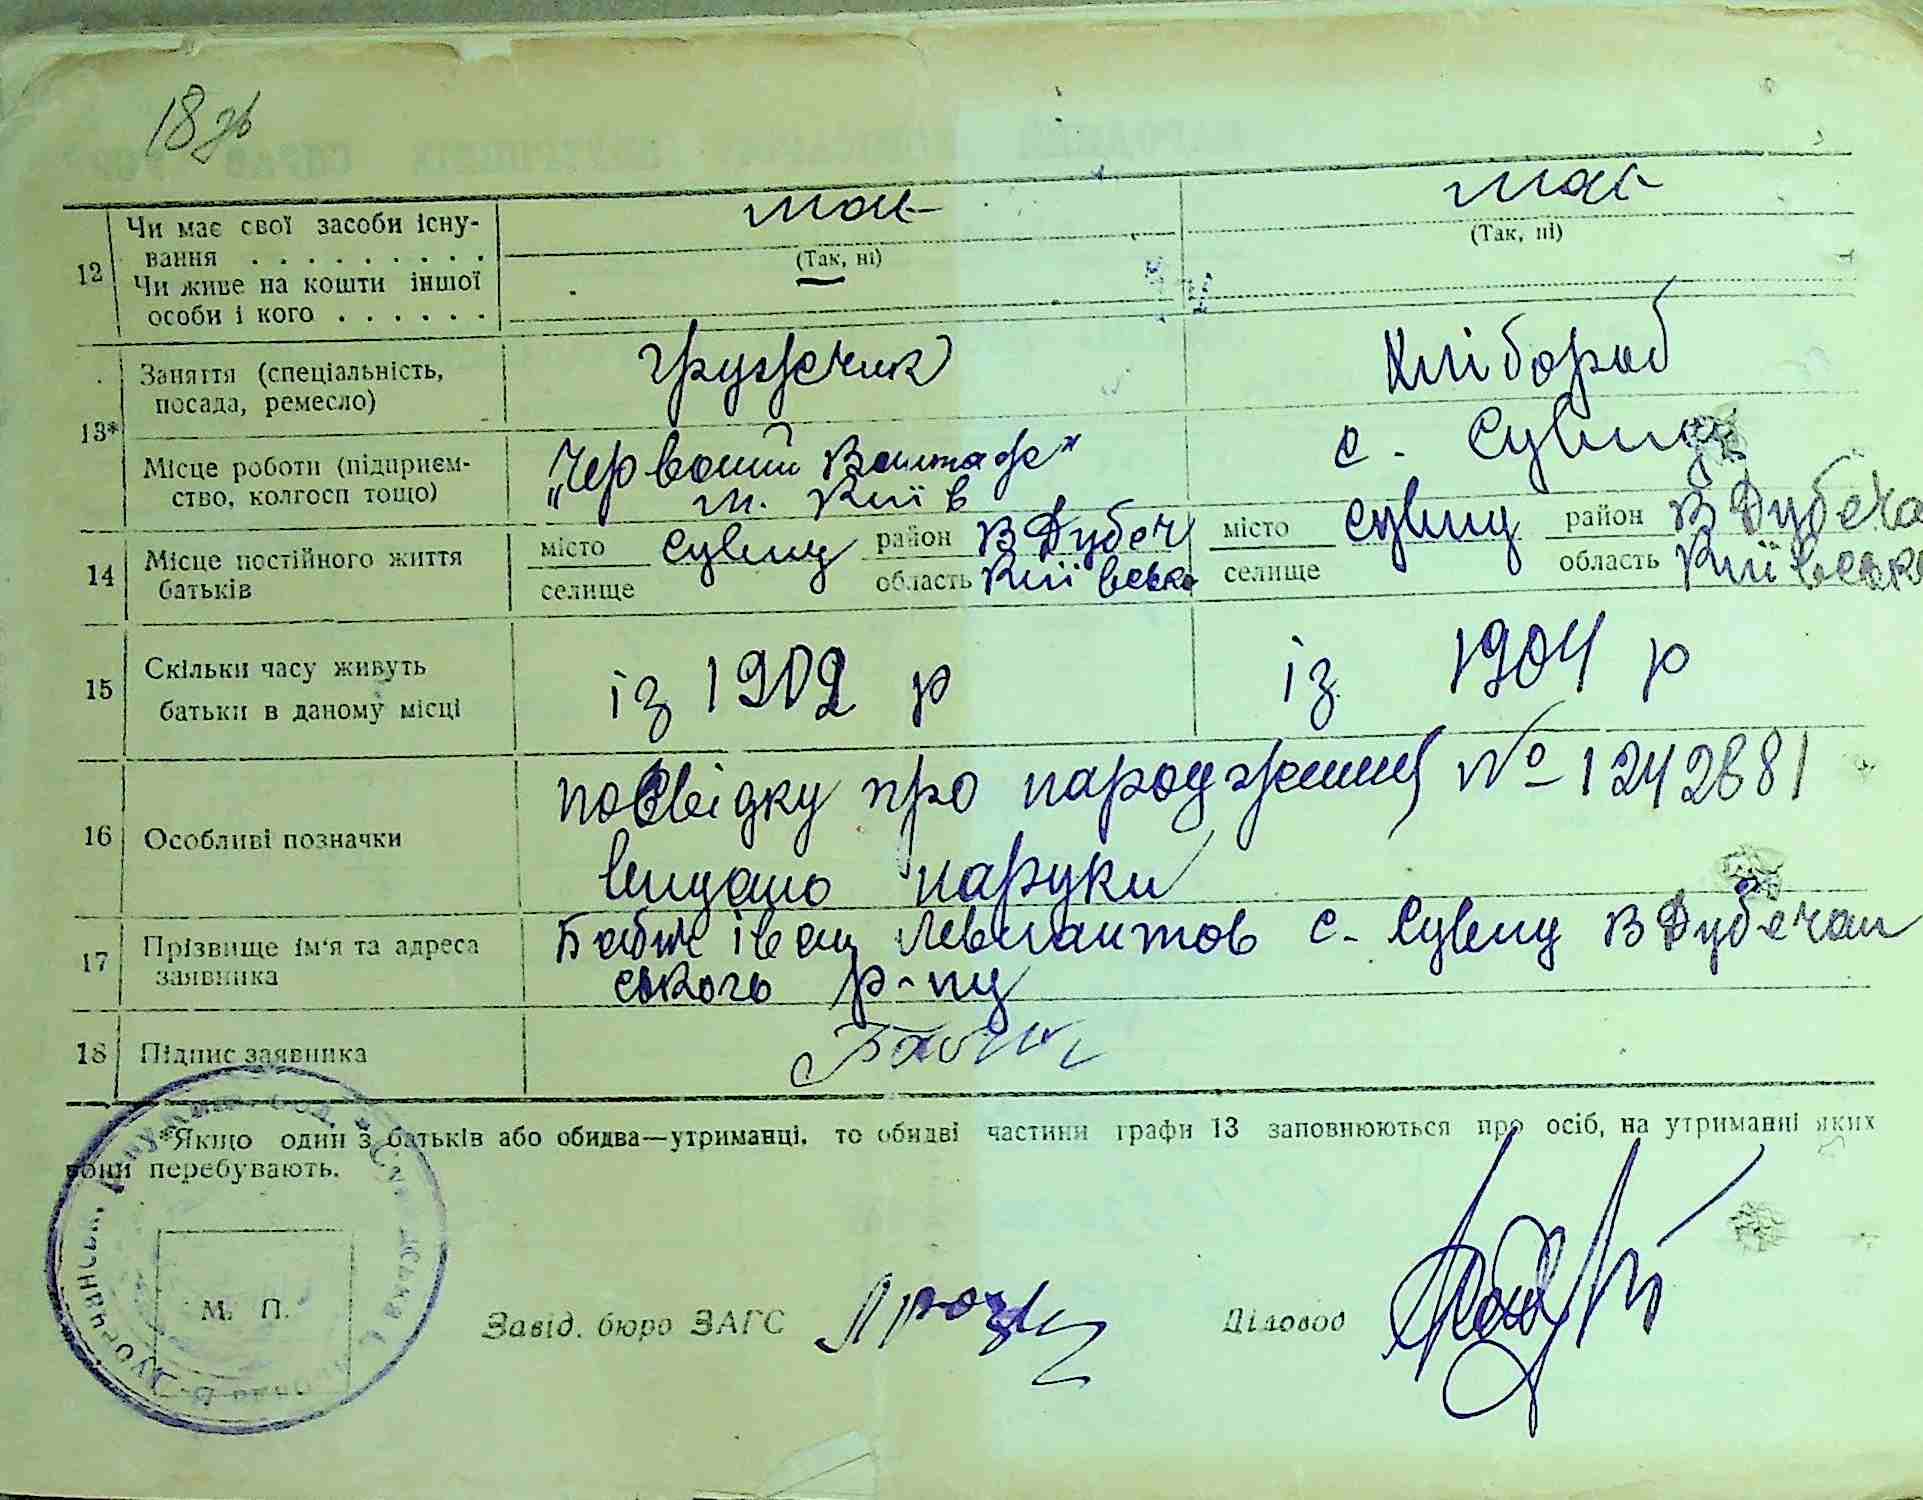 18 зв
12 Чи має свої засоби існу- має має
вання . . . . . . . . . (Так, ні) (Так, ні)
Чи живе на кошти іншої
особи і кого . . . . . .
13* Заняття (спеціальність, грузчик Хлібороб
посада, ремесло)
Місце роботи (підприєм- „Червоний Вантаж" с. Сувид
ство, колгосп тощо) м. Київ
14 Місце постійного життя місто Сувид район В Дубеч місто Сувид район В Дубеча
батьків селище область Київська селище область Київськ
15 Скільки часу живуть із 1902 р із 1904 р
батьки в даному місці
16 Особливі позначки посвідку про народження № 1242881
видано наруки
17 Прізвище ім'я та адреса Бабич Іван с. Сувид В Дубечан
заявника ського р-ну
18 Підпис заявника Бабич
*Якщо один з батьків або обидва—утриманці, то обидві частини графи 13 заповнюються про осіб, на утриманні яких
вони перебувають.
М. П.
Завід. бюро ЗАГС Діловод